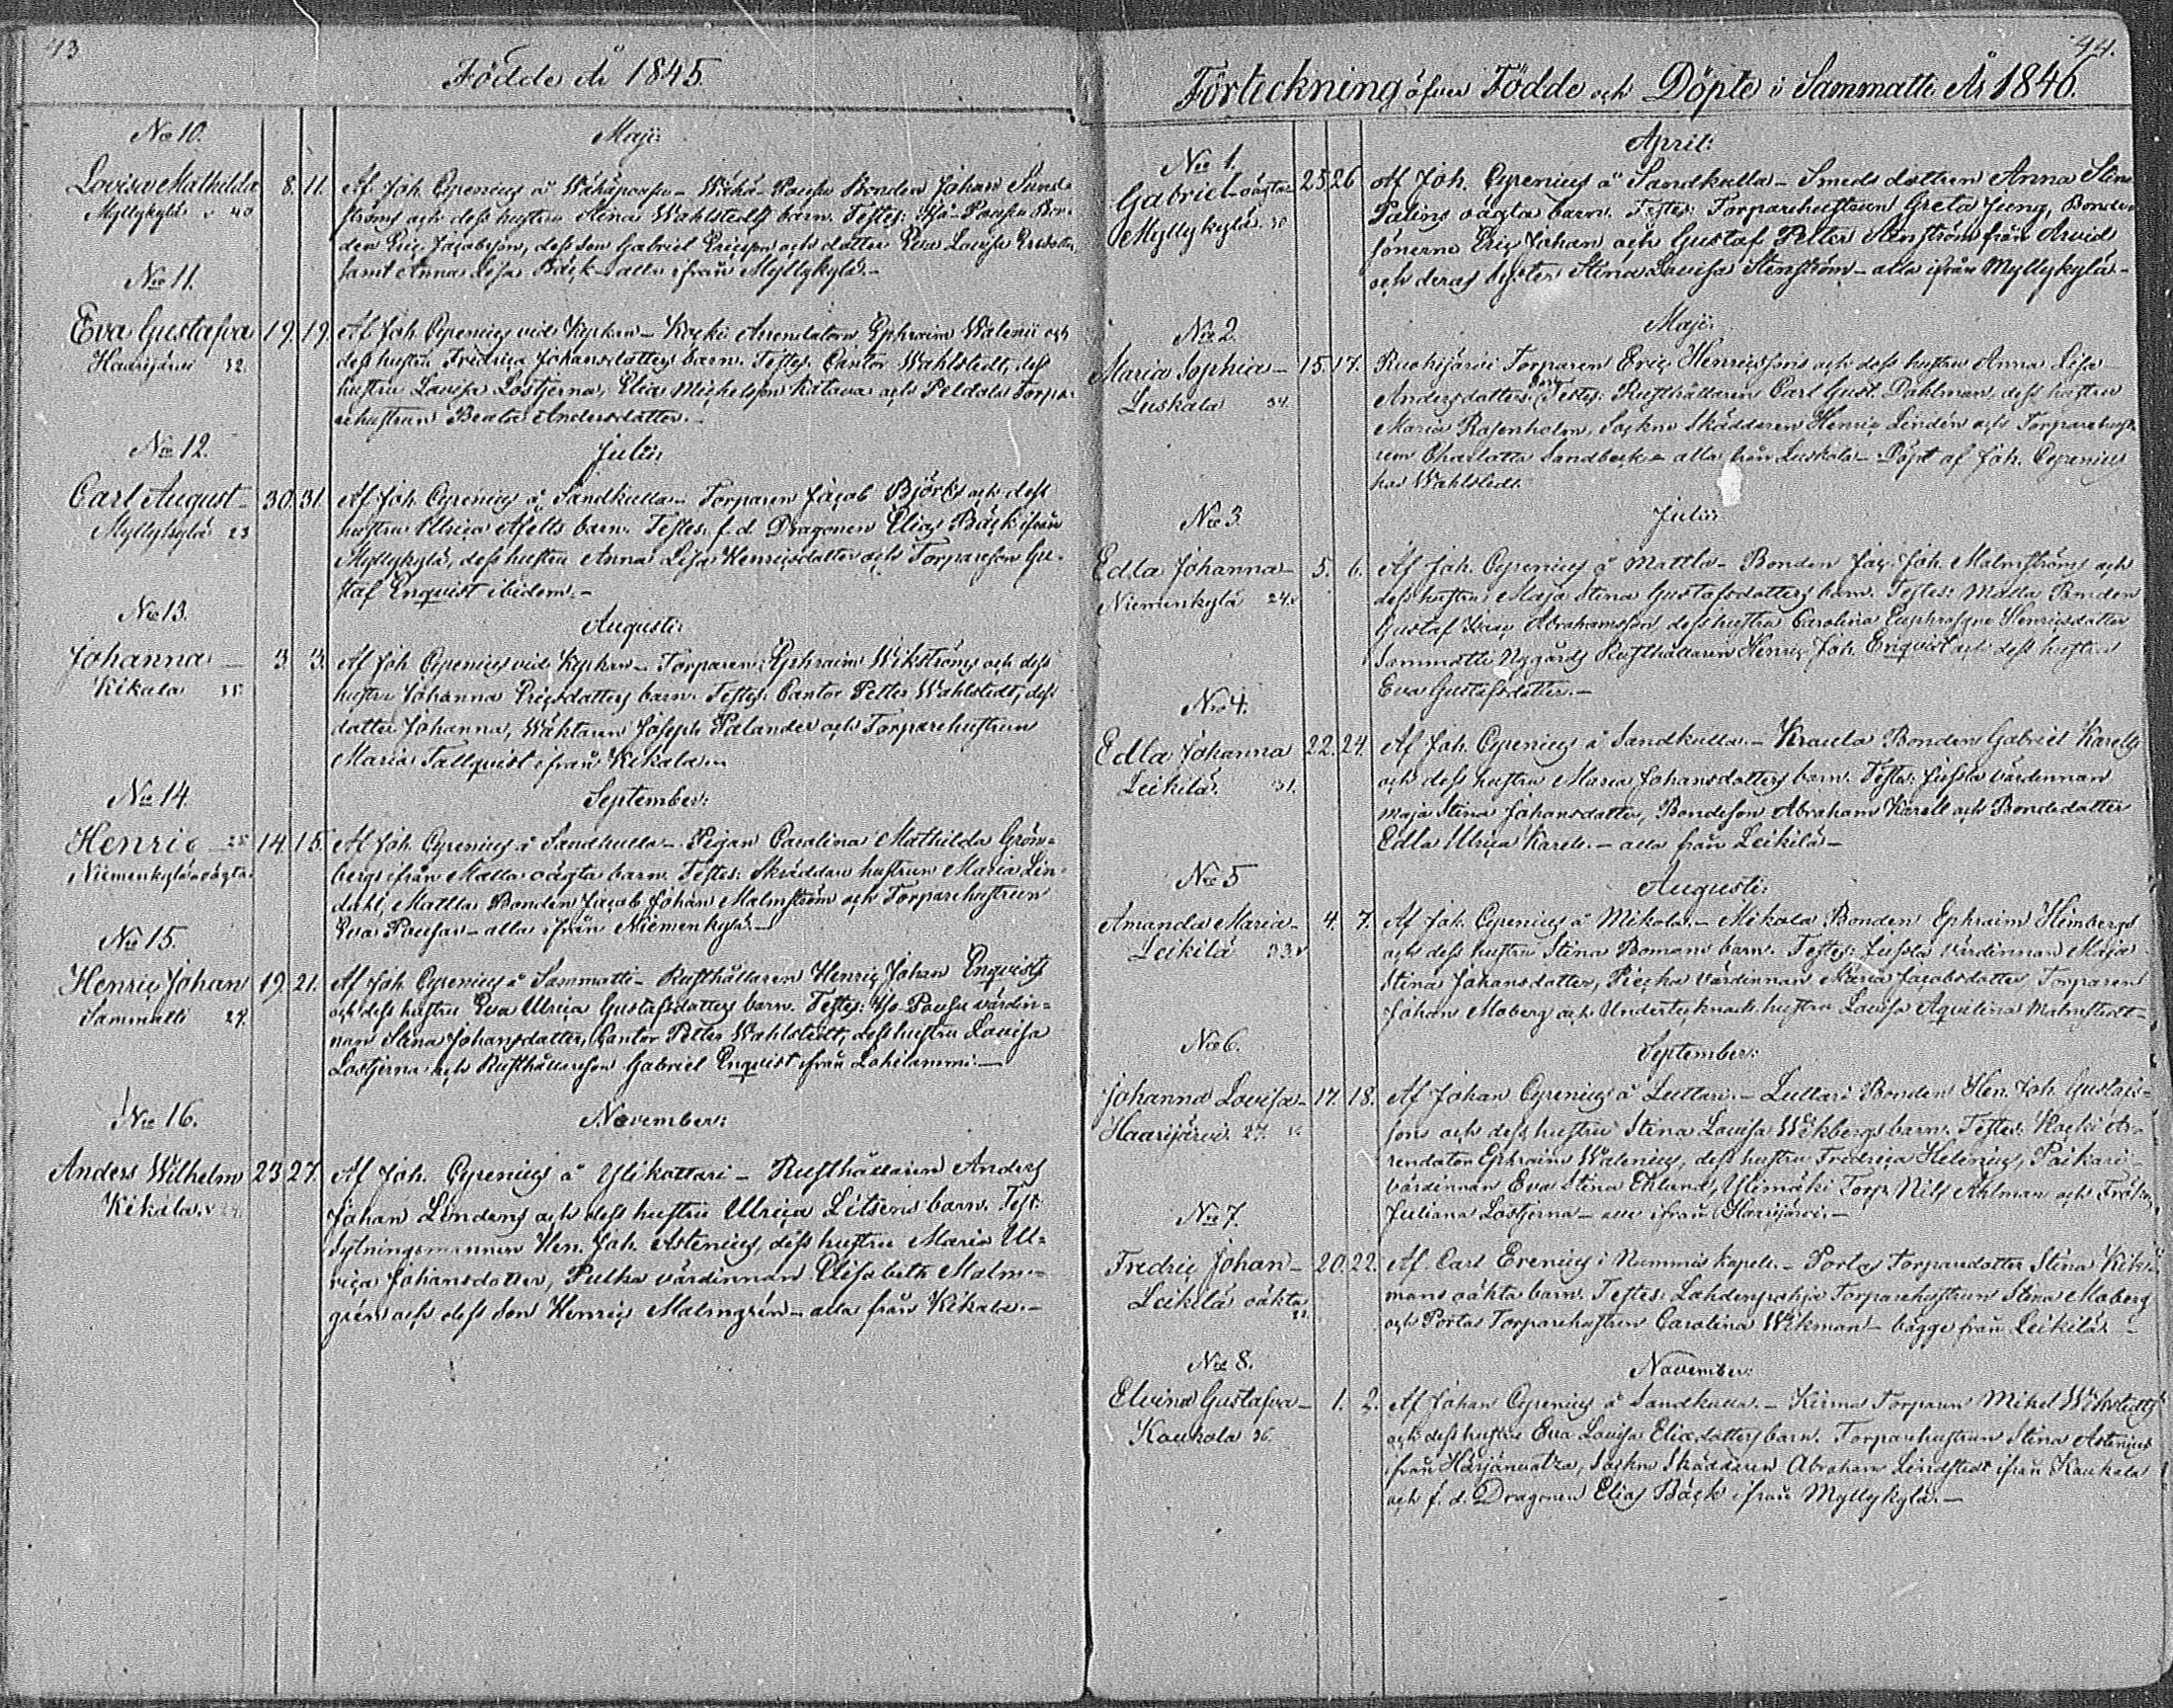 43
Födde År 1845.
No 10.
Maji:
Lovisa Mathilda 8. 11. Af Joh. Cyrenius å Wähäpousu – Wähä-Pousu Bonden Johan Sund-
Myllykylä 40 ströms och dess hustru Stina Wahlstedts barn. Testes: Pousu Bon-
den Eric Jacobsson, dess son Gabriel Ericsson och dotter Eva Lovisa
samt Anna Lisa Bäck – alla ifrån Myllykylä. –
No 11.
Eva Gustafva 19. 19. Af Joh. Cyrenius vid Kyrkan – Kocki Arrendatorn Ephraim Walenii och
Haarijärvi 32. dess hustru Fredrica Johansdotters barn. Testes: Cantor Wahlstedt, dess
hustru Lovisa Lostjerna, Elia Michelsson Katava och Peldola Torpa-
rehustrun Beata Andersdotter. –
No 12.
Julii:
Carl August – 30. 31. Af Joh. Cyrenius å Sandkulla – Torparen Jacob Björks och dess
Myllykylä 23 hustru Ulrica Aselts barn. Testes: f. d. Dragonen Elias Bäck ifrån
Myllykylä, dess hustru Anna Lisa Henricsdotter och Torpareson Gu-
staf Enqvist ibidem. –
No 13.
Augusti:
Johanna – 3. 3. Af Joh. Cyrenius vid Kyrkan – Torparen Ephraim Wikströms och dess
Kikala 35. hustru Johanna Ericsdotters barn. Testes: Cantor Petter Wahlstedt, dess
dotter Johanna, Wäktaren Joseph Palander och Torparehustrun
Maria Tallqvist ifrån Kikala. –
No 14.
September:
Henric – 25 14. 15. Af Joh. Cyrenius å Sandkulla – Pigan Carolina Mathilda Grön-
Niemenkylä oägta. bergs ifrån Matla oägta barn. Testes: Skräddare hustrun Maria Lin-
dahl, Matla Bonden Jacob Johan Malmström och Torparehustrun
Eva Pousar – alla ifrån Niemenkylä. –
No 15.
Henric Johan 19. 21. Af Joh. Cyrenius å Sammatti – Rusthållaren Henric Johan Enqvists
Sammatti 24. och dess hustru Eva Ulrica Gustafsdotters barn. Testes: Iso-Pousu värdin-
nan Stina Johansdotter, Cantor Petter Wahlstedt, dess hustru Lovisa
Lostjerna och Rusthållareson Gabriel Enqvist ifrån Lohilammi. –
No 16.
November:
Anders Wilhelm 23. 27. Af Joh. Cyrenius å Ylikattari – Rusthållaren Anders
Kikala. Johan Lindens och dess hustru Ulrica Litsens barn. Test:
Sytningsmannen Hen. Joh. Astenius, dess hustru Maria Ul-
rica Johansdotter, Pulka värdinnan Elisabeth Malm-
grén och dess son Henric Malmgrén – alla från Kikala. –
44.
Förteckning öfver Födde och Döpte i Sammatti År 1846.
April:
No 1.
Gabriel oägta 25. 26 Af Joh. Cyrenius å Sandkulla – Smeds dottren Anna Stina
Myllykylä. 30 Palins oägta barn. Testes: Torparehustrun Greta Jung, Bonde-
sönerne Eric Johan och Gustaf Petter Stenström från Arvid
och deras syster Stina Lovisa Stenström – alla ifrån Myllykylä –
No 2.
Maji:
Maria Sophia – 15. 17. Ruohijärvi Torparen Eric Henricssons och dess hustru Anna Lisa
Luskala 34. Andersdotters barn Testes: Rusthållaren Carl Gust. Dahlman, dess hustru
Maria Rosenholm, Sockne Skräddaren Henric Lindén och Torparehust-
run Charlotta Sandbeck – alla från Luskala – Döpt af Joh. Cyrenius
hos Wahlstedt.
No 3.
Julii:
Edla Johanna – 5. 6. Af Joh. Cyrenius å Mattla – Bonden Jac. Joh. Malmströms och
Niemenkylä 24. dess hustru Maja Stina Gustafsdotters barn. Testes: Matla Bonden
Gustaf Isac Abrahamsson, dess hustru Carolina Euphrosyne Henricsdotter
Sammatti Nygårds Rusthållaren Henric Joh. Enqvist och dess hustru
Eva Gustafsdotter. –
No 4.
Edla Johanna 22. 24. Af Joh. Cyrenius å Sandkulla. – Kraula Bonden Gabriel Karells
Leikilä. 31. och dess hustru Maria Johansdotters barn. Testes: Jussila värdinnan
Maja Stina Johansdotter, Bondeson Abraham Karell och Bondedotter
Edla Ulrica Karell. – alla från Leikilä –
No 5
Augusti:
Amanda Maria – 4. 7. Af Joh. Cyrenius å Mikola. – Mikola Bonden Ephraim Himbergs
Leikilä 33. och dess hustru Stina Bomans barn. Testes: Jussila värdinnan Maja
Stina Johansdotter, Piecka värdinnan Maria Jacobsdotter, Torparen
Johan Moberg och Undertecknads hustru Lovisa Aquilina Malmstedt –
No 6.
September:
Johanna Lovisa – 17. 18. Af Johan Cyrenius å Luttari. – Luttari Bonden Hen. Joh. Gustafs-
Haarijärvi. 27. sons och dess hustru Stina Lovisa Wikbergs barn. Testes: Kocki Ar-
rendator Ephraim Walenius, dess hustru Fredrica Helenius, Paikari
värdinnan Eva Stina Eklund, Ylimäki Torp. Nils Ahlman och Fröken
Juliana Lostjerna – alla ifrån Haarijärvi. –
No 7.
Fredric Johan – 20. 22. Af Carl Erenius i Nummis kapell. – Portas Torparedotter Stina Wik-
Leikilä oäkta 21. mans oäkta barn. Testes: Lahdenpohja Torparehustrun Stina Moberg
och Portas Torparehustrun Carolina Wikman – bägge från Leikilä. –
No 8.
November:
Elvina Gustafva – 1. 2. Af Johan Cyrenius å Sandkulla. – Kirma Torparen Mikel Wihstedts
Kaukola 36. och dess hustru Eva Lovisa Eliædotters barn. Torparehustrun Stina Astenius
ifrån Härjänvatza, Sockne Skräddaren Abraham Lindstedt ifrån Kaukola
och f. d. Dragonen Elias Bäck ifrån Myllykylä. –